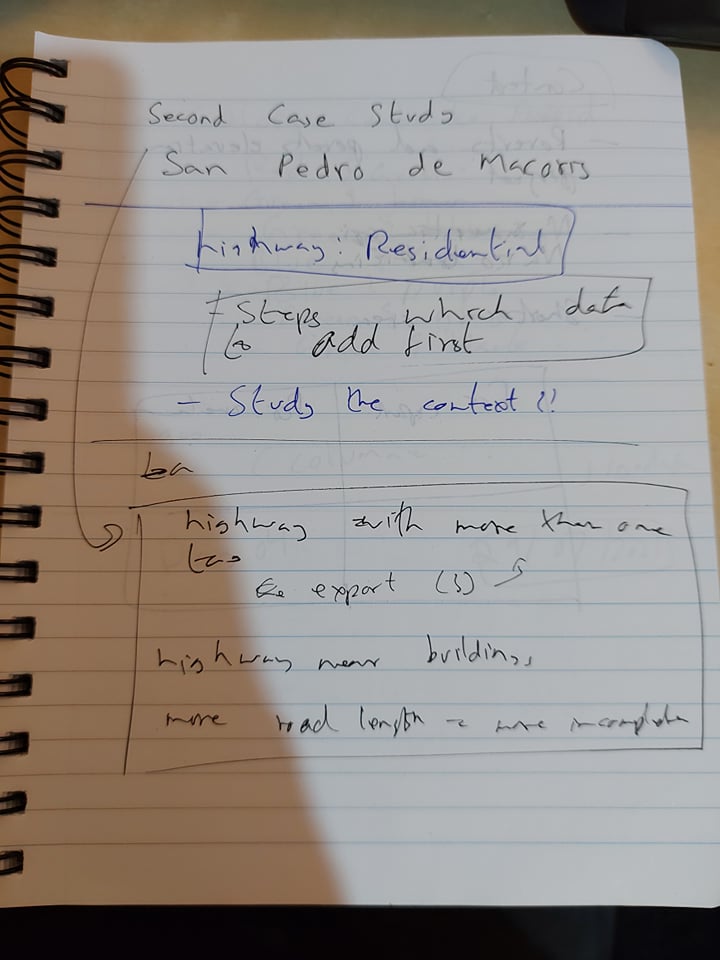 Second Case Study
San Pedro de Macoris
highway: Residential
- Steps which data
to add first
- Study the context !!
highway with more than one
tag
export (3)
highway near buildings
more road length = more incomplete